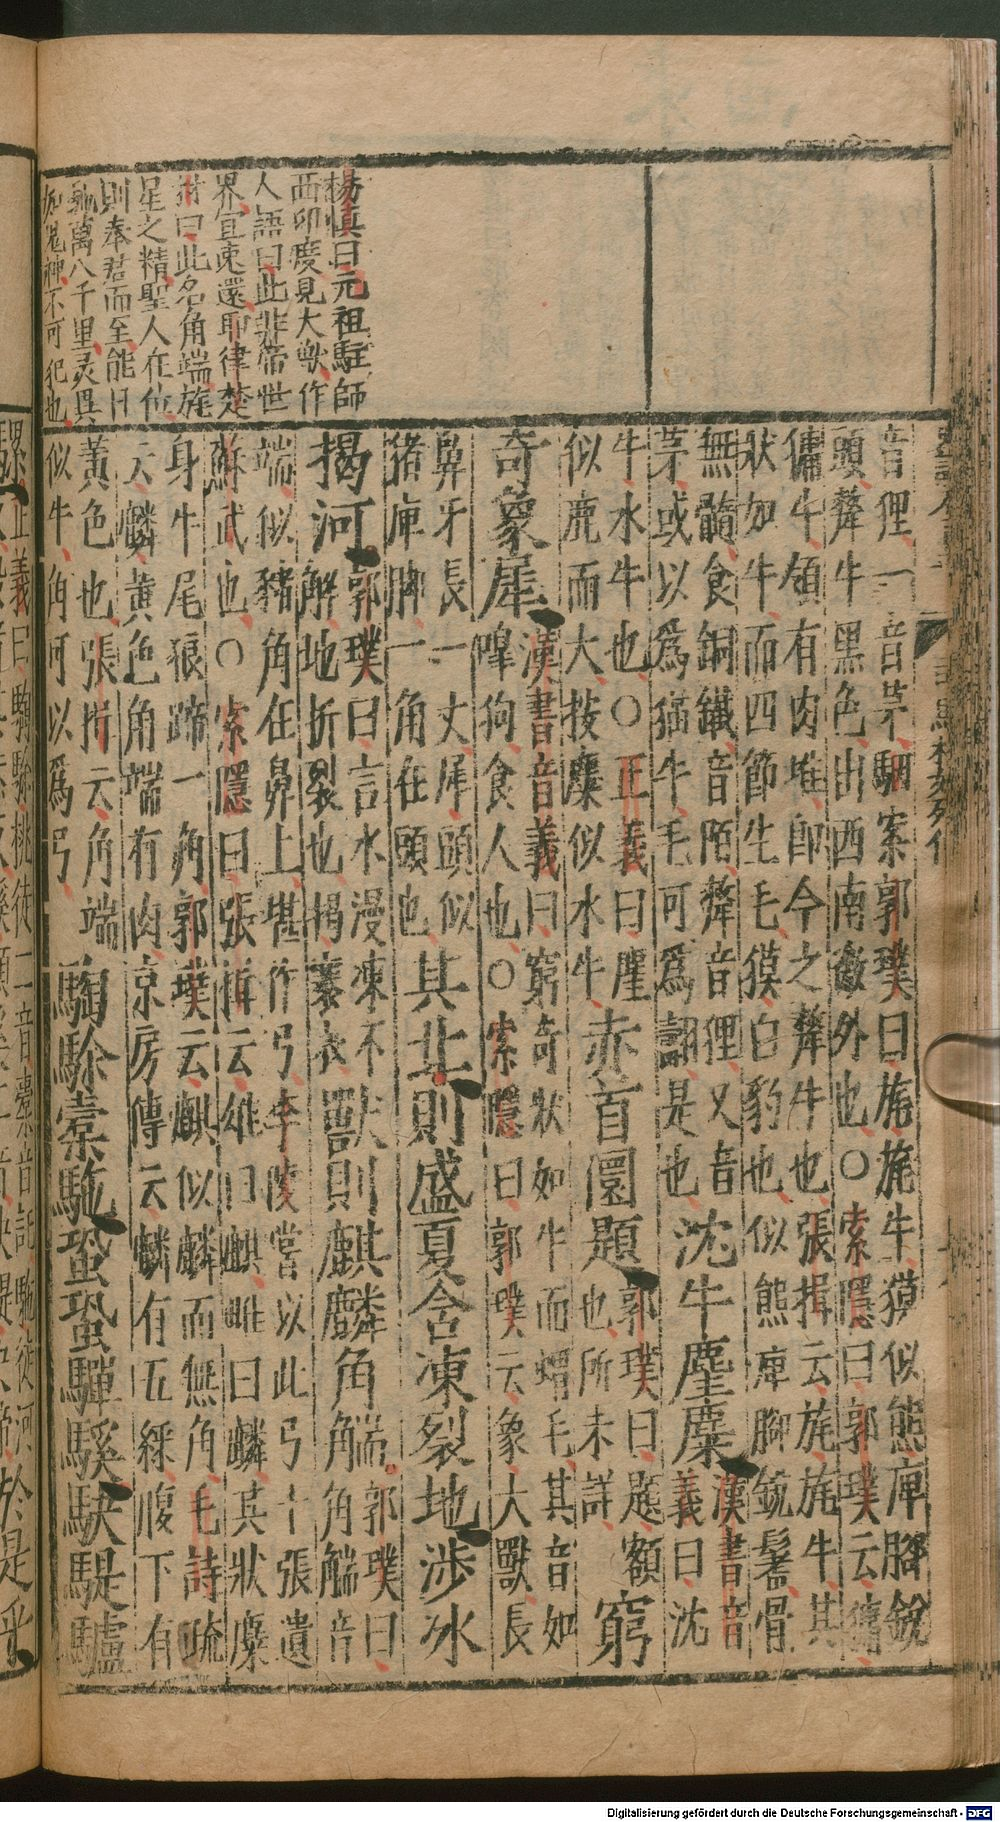 楊慎曰元祖駐師
西印度見大獸作
人語曰此非帝世
界宜速還耶律楚
材曰此名角端旄
星之精聖人在位
則奉君而至能日
馳萬八千里灵異
如鬼神不可犯也
音貍一音茅駰案郭璞曰旄旄牛獏似熊庳腳銳
頭犛牛黑色出西南徼外也○索隱曰郭璞云㹍
㹍牛領有肉堆即今之犎牛也張揖云旄旄牛其
狀如牛而四節生毛獏白豹也似熊庳腳銳鬐骨
無髓食銅鐵音陌犛音貍又音
茅或以為猫牛毛可為翿是也
沈牛麈麋
漢書音
義曰沈
牛水牛也○正義曰麈
似鹿而大按麋似水牛
赤首圜題
郭璞曰題額
也所未詳
窮
奇象犀
漢書音義曰窮奇狀如牛而蝟毛其音如
嘷狗食人也○索隱曰郭璞云象大獸長
鼻牙長一丈犀頭似
猪庳脚一角在頭也
其北則盛夏含凍裂地涉冰
揭河
郭璞曰言水漫凍不
解地坼裂也揭褰衣
獸則麒麟角䚡
郭璞曰
角䚡音
端似豬角在鼻上堪作弓李陵嘗以此弓十張遺
蘇武也○索隱曰張揖云雄曰麒雌曰麟其狀麋
身牛尾狼蹄一角郭璞云麒似麟而無角毛詩疏
云麟黃色角端有肉京房傳云麟有五綵腹下有
黃色也張揖云角端
似牛角可以為弓
騊駼橐駞蛩蛩驒騱駃騠驢